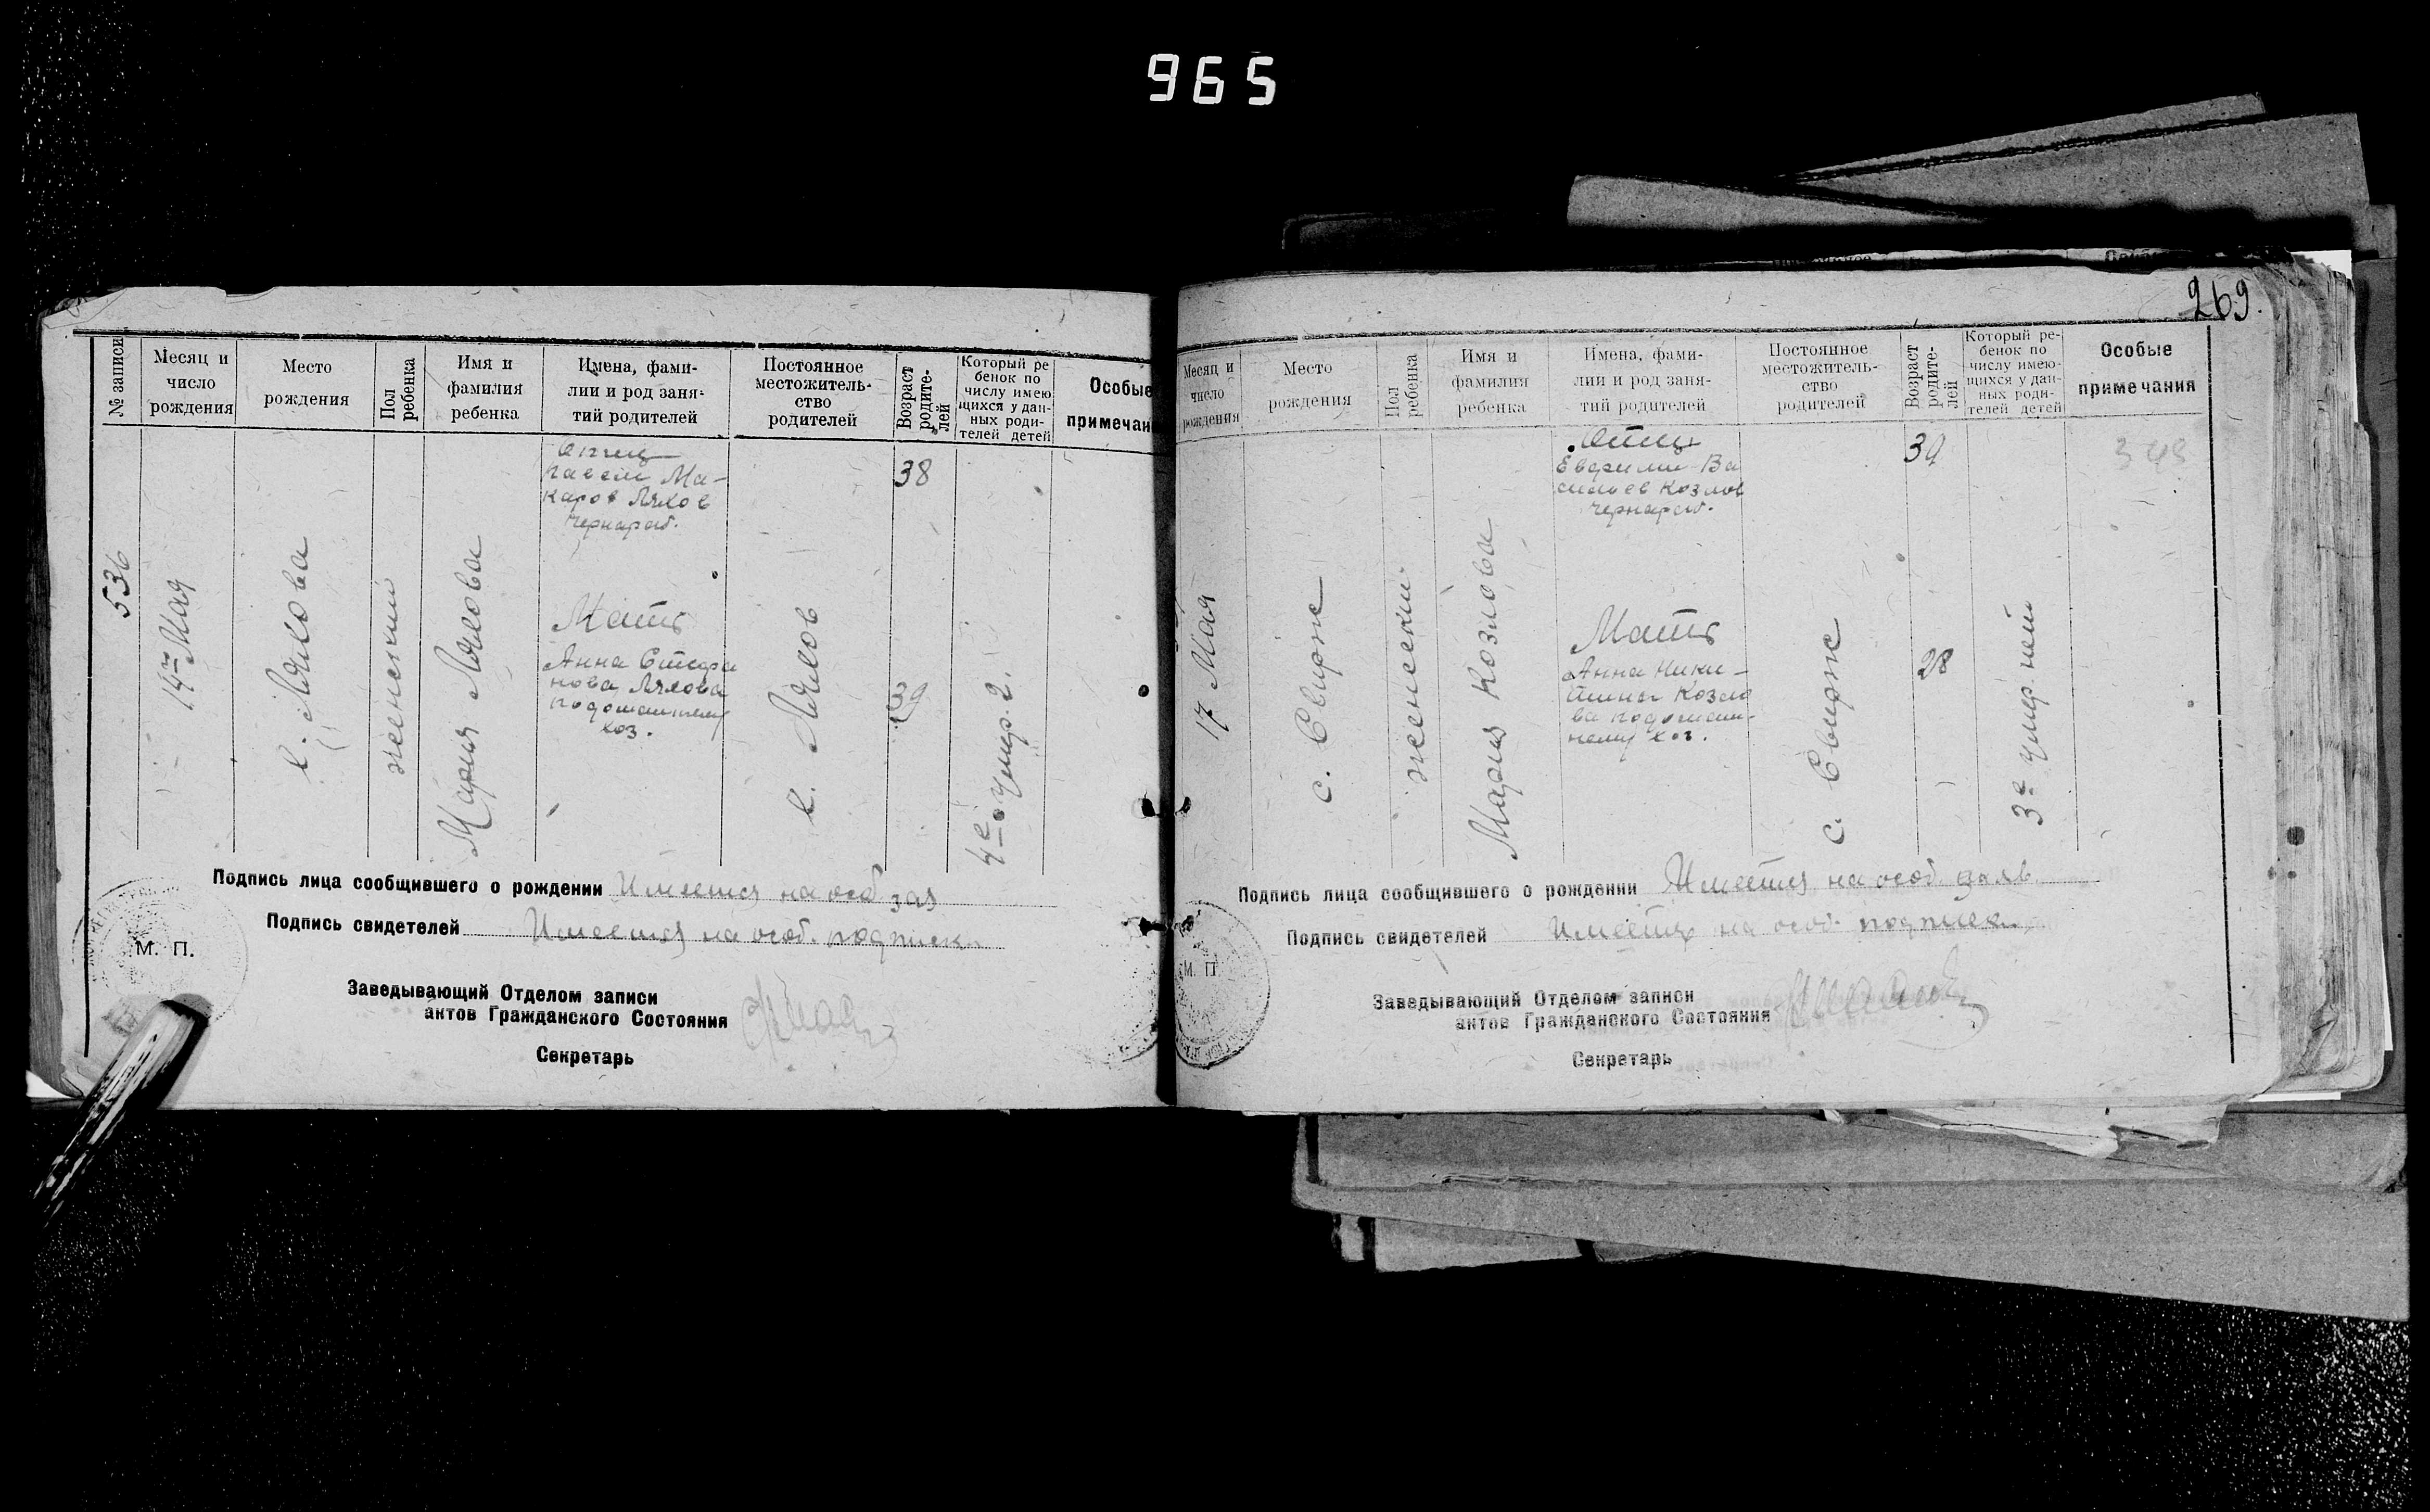 965
№ записи
Месяц и число рождения
Место рождения
Пол ребенка
Имя и фамилия ребенка
Имена, фами-
лии и род заня-
тий родителей
Постоянное
местожитель-
ство
родителей
Возраст родите-
лей
Который ре
бенок по
числу имею
щихся у дан-
ных роди-
телей детей
Особые
примечан
536
14го Мая
с. Ляхова
женский
Мария Ляхова
Отец
Павел Ма-
каров Ляхов
чернараб.
Мать
Анна
Ляхова
подомашнему
хоз.
с. Ляхов
38
39
4е умер. 2.
Подпись лица сообщившего о рождении Имеется на особ зая
Подпись свидетелей Имеется на особ. подписки
М. П.
Заведывающий Отделом записи
актов Гражданского Состояния
Секретарь
269.
Месяц и
число
рождения
Место
рождения
Пол
ребенка
Имя и
фамилия
ребенка
Имена, фами-
лии и род заня-
тий родителей
Постоянное
местожитель-
ство
родителей
Возраст
родите-
лей
Который ре-
бенок по
числу имею-
щихся у дан-
ных роди-
телей детей
Особые
примечания
17 Мая
с. Свирж
женский
Мария Козлова
Отец
Ва
сильев Козлов
чернараб.
Мать
Анна Ники-
тина Козло
ва подомаш-
нему хоз.
с. Свирж
28
3е умер. нет
Подпись лица сообщившего о рождении Имеется на особ. заяв.
Подпись свидетелей Имеется на особ. подписки
М. П.
Заведывающий Отделом записи
актов Гражданского Состояния
Секретарь